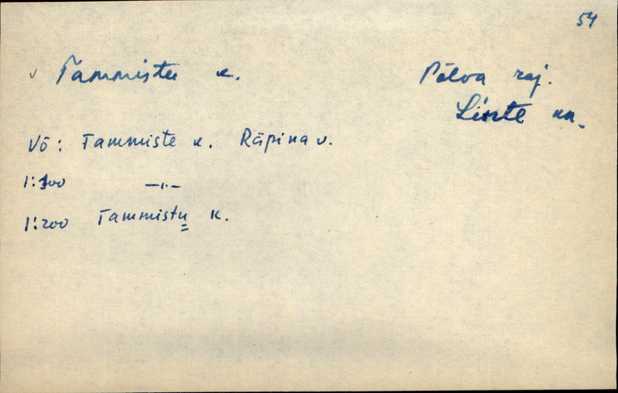 54
v Tammistu k. Põlva raj.
Liszte kn.
Võ: Tammiste k. Räpina v.
1:300 —„—
1:200 Tammistu k.